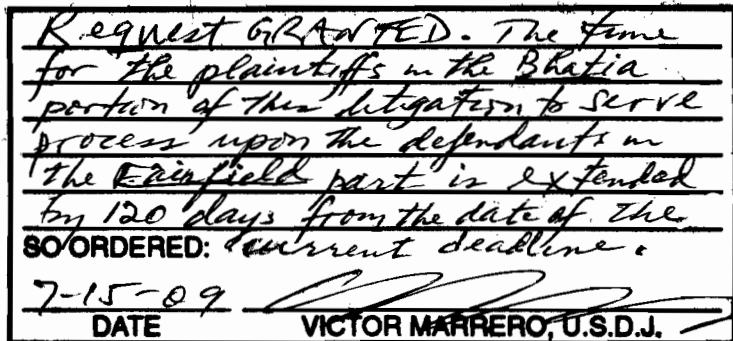 Request GRANTED. The time
for the plaintiffs in the Bhatia
portion of this litigation to serve
process upon the defendants in
the Fairfield part is extended
by 120 days from the date of the
SO ORDERED: current deadline.
7-15-09
DATE VICTOR MARRERO, U.S.D.J.